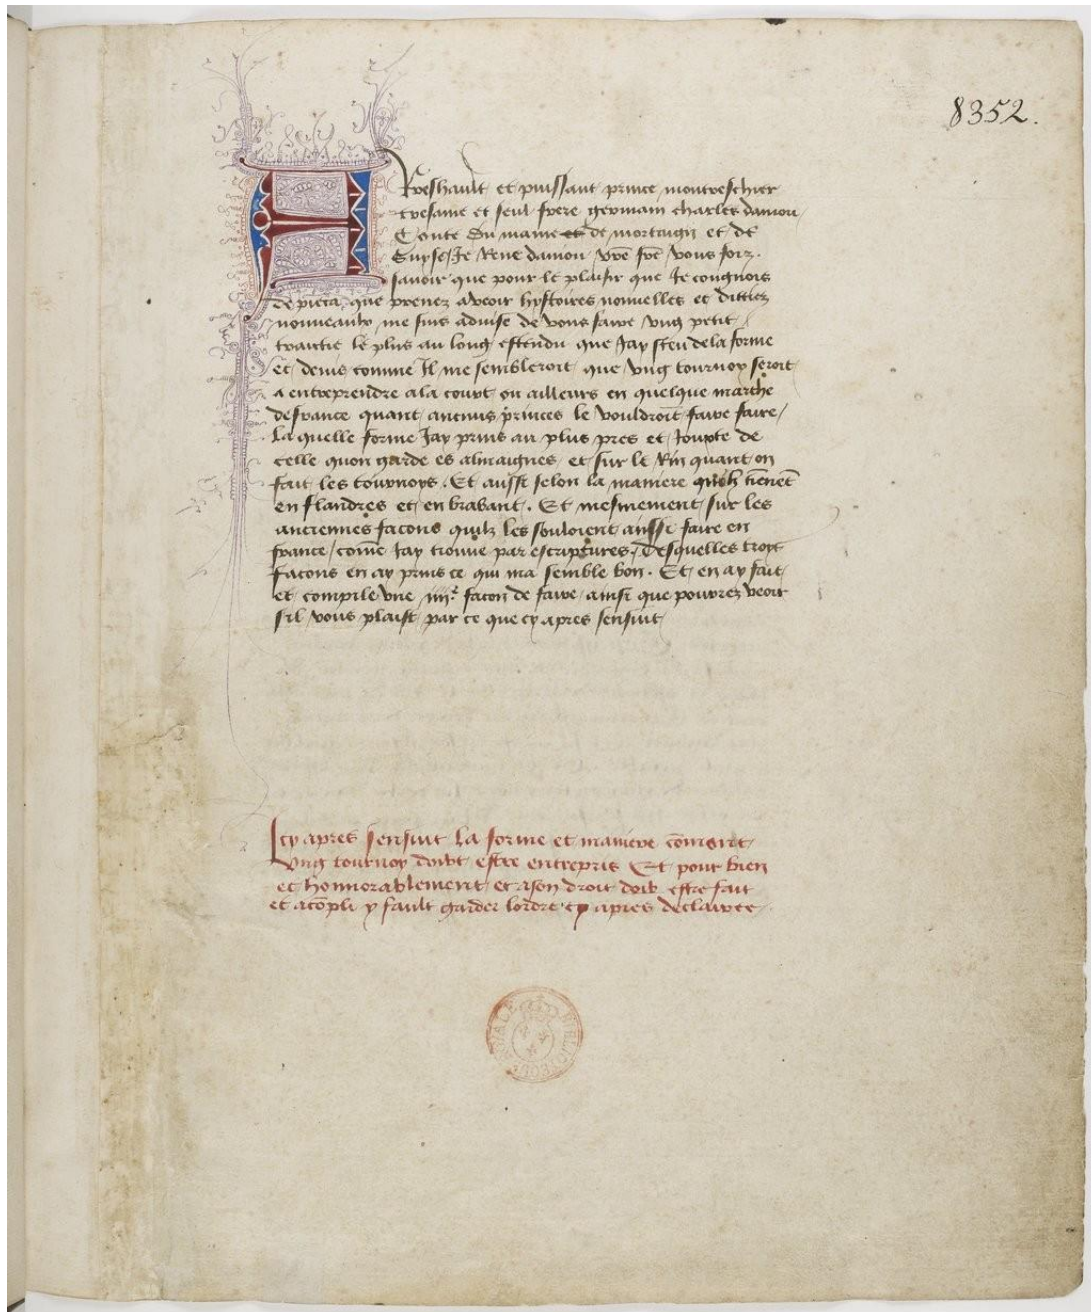 8352.
Treshault et puissant prince mon treschier
tresame et seul frere germain charles danjou
Conte du maine et de mortaign et de
Guyse Je Rene danjou vre fre vous foiz
savoir que pour le plaisir que Je congnois
de pieca que prenez aveoir hystoires nouvelles et dittiez
nouveaulx me suis advise de vous faire ung petit
traictie le plus au long estendu que Jay sceu dela forme
et devis comme Il me sembleroit que ung tournoy seroit
a entreprendre ala court ou ailleurs en quelque marche
de france quant aucuns princes le vouldroit faire faire
La quelle forme Jay prins au plus pres et Joupte de
celle quon garde es almaignes et sur le Rin quant on
fait les tournoys. Et aussi selon la maniere quilz tienent
en flandres et en brabant. Et mesmement sur les
anciennes facons quilz les souloient aussi faire en
france come Jay trouve par escriptures Desquelles troys
facons en ay prins ce qui ma semble bon. Et en ay fait
et compile une iiiie facon de faire ainsi que pourrez veoir
sil vous plaist par ce que cy apres sensuit
Icy apres sensuit la forme et maniere coment
Ung tournoy doibt estre entrepris Et pour bien
et honnorablement et ason droit doib estre fait
et acopli y fault garder lordre cy apres declairee